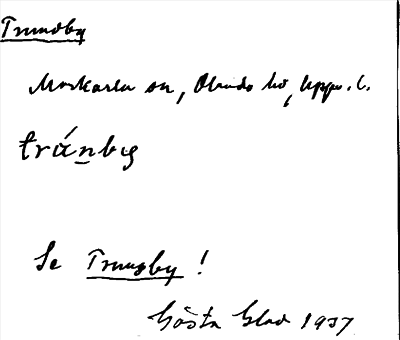 Trundby
Morkarla sn, Olands hd, Upps. l.
trúnby
Se Trunsby!
Gösta Blad 1937